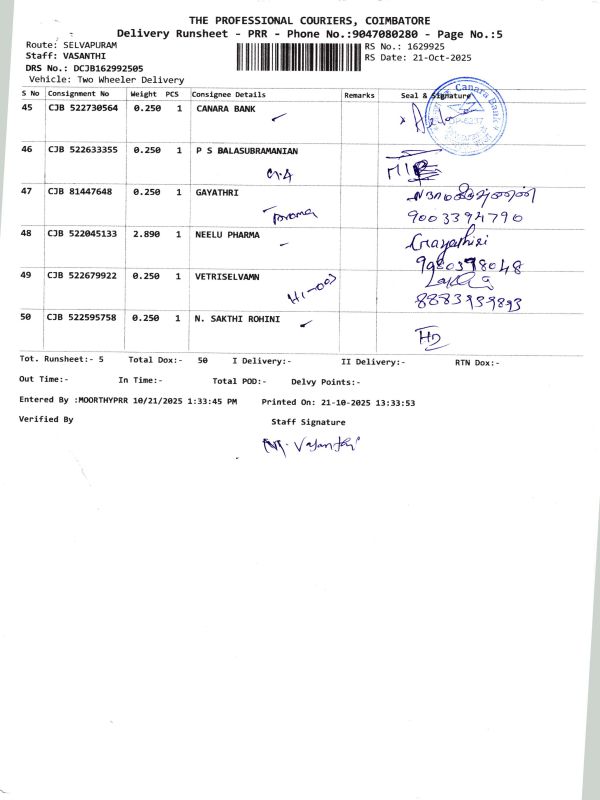 THE PROFESSIONAL COURIERS, COIMBATORE
Delivery Runsheet - PRR - Phone No.:9047080280 - Page No.:5
Route: SELVAPURAM RS No.: 1629925
Staff: VASANTHI RS Date: 21-Oct-2025
DRS No.: DCJB162992505
Vehicle: Two Wheeler Delivery
S No Consignment No Weight PCS Consignee Details Remarks Seal & Signature
45 CJB 522730564 0.250 1 CANARA BANK
Canara Bank
46 CJB 522633355 0.250 1 P S BALASUBRAMANIAN
47 CJB 81447648 0.250 1 GAYATHRI
9003394790
48 CJB 522045133 2.890 1 NEELU PHARMA Gayathiri
9980398048
49 CJB 522679922 0.250 1 VETRISELVAMN
8883939893
50 CJB 522595758 0.250 1 N. SAKTHI ROHINI
Tot. Runsheet:- 5 Total Dox:- 50 I Delivery:- II Delivery:- RTN Dox:-
Out Time:- In Time:- Total POD:- Delvy Points:-
Entered By :MOORTHYPRR 10/21/2025 1:33:45 PM Printed On: 21-10-2025 13:33:53
Verified By Staff Signature
M. Vasanthi